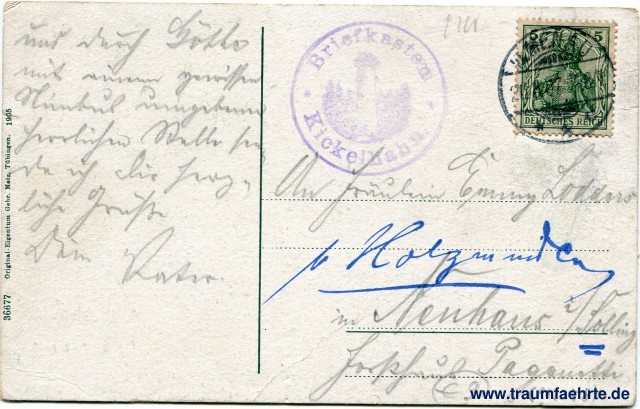 und durch Göthe
mit einem gewissen
Nimbus umgebenen
herrlichen Stelle sen-
de ich dir herz-
liche Grüße
Dein Vater.
Original-Eigentum Gebr. Metz, Tübingen. 1905
36677
Briefkasten
Kickelhahn
5 5
DEUTSCHES REICH
An Fräulein Emmy
p Holzminden
in Neuhaus i/Solling
Forsthaus
www.traumfaehrte.de